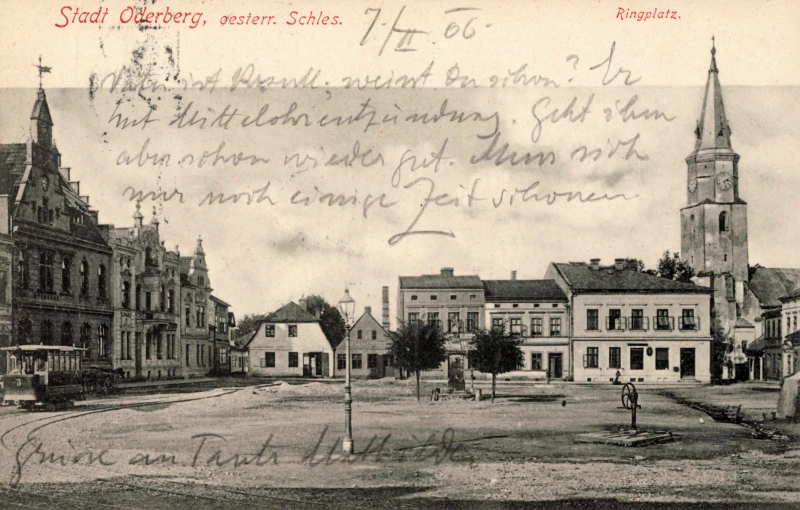 Stadt Oderberg, oesterr. Schles.
Ringplatz.
7/II. 06.
Vater ist krank, weisst Du schon? Er
hat Mittelohrentzündung. Geht ihm
aber schon wieder gut. Muss sich
nur noch einige Zeit schonen
Grüsse an Tante Mathilde